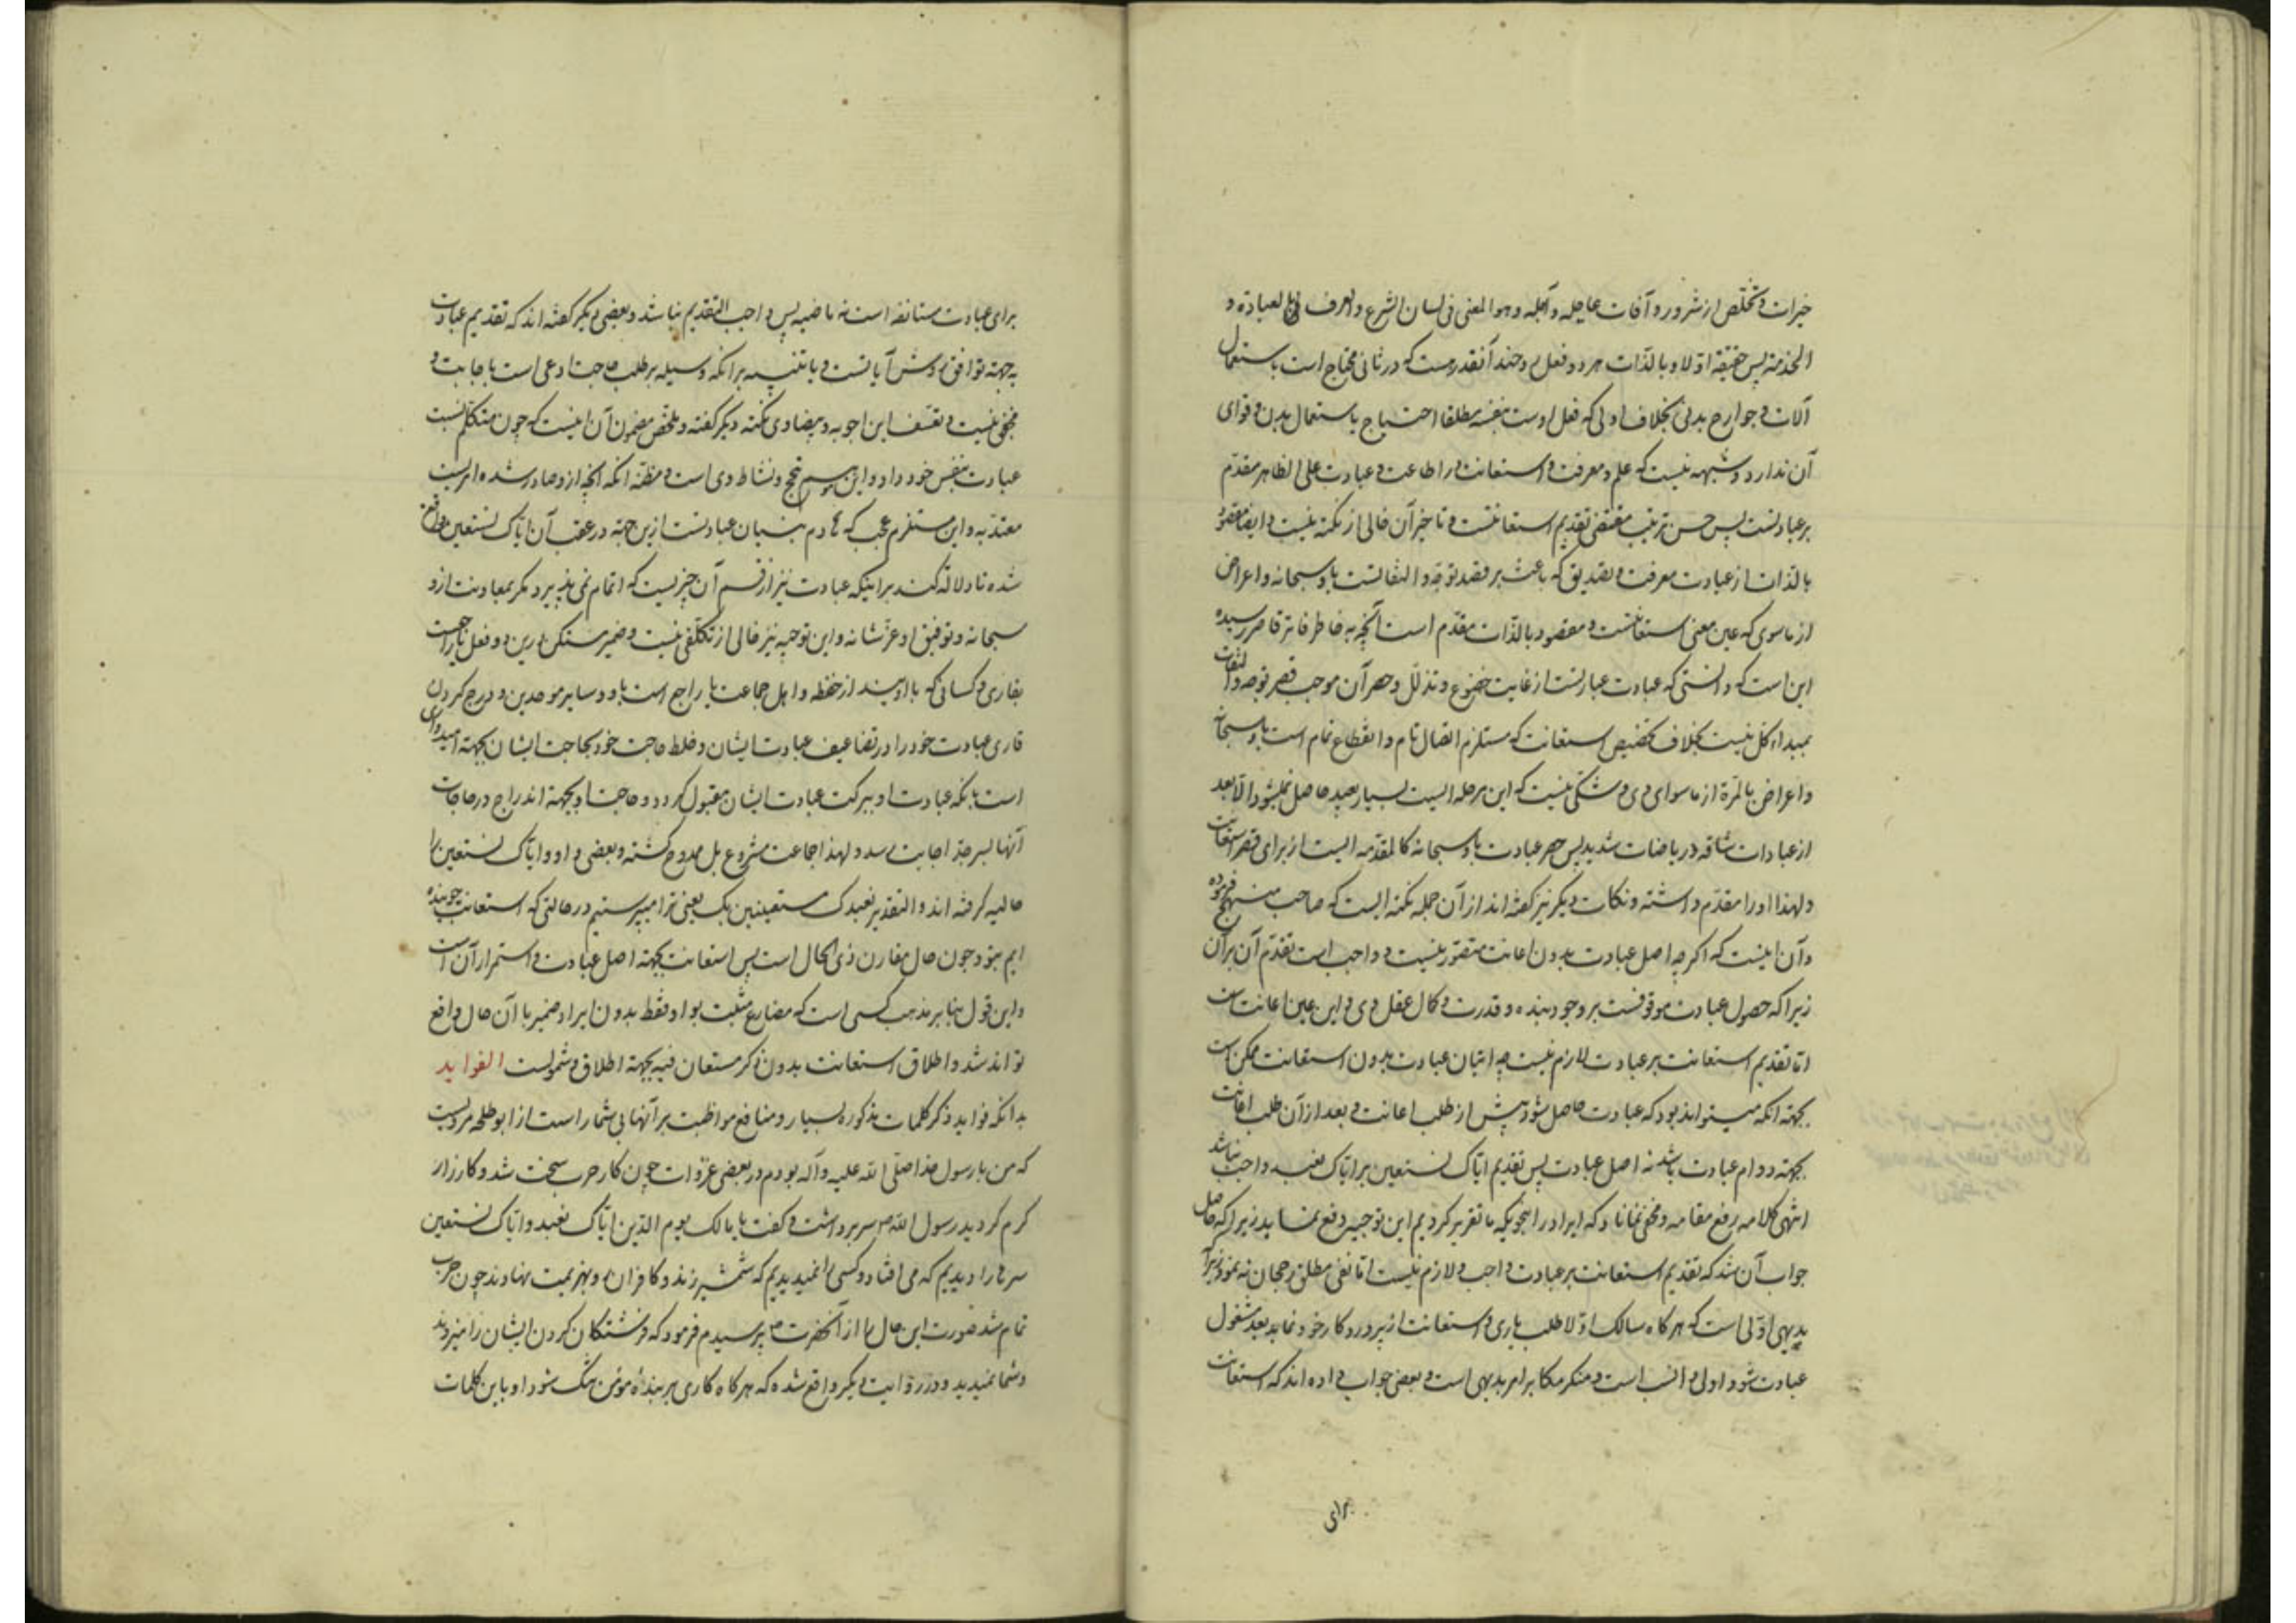 خیرات و تخلص از شرور و آفات عاجله و آجله و هو المعنی فی لسان الشرع والعرف العبادة و
الخدمة پس حقیقة اولا و بالذات هر دو فعل اند آنقدر هست که در ثانی محتاج است باستعمال
آلات و جوارح بدنی بخلاف اولی که فعل اوست بنفسه مطلقا احتیاج باستعمال بدن و قوای
آن ندارد و شبهه نیست که علم و معرفت و استعانت و اطاعت و عبادت علی الظاهر مقدم
بر عبادتست پس حسن ترتیب مقتضی تقدیم استعانتست و تاخیر آن خالی از نکته نیست و ایضا مقصود
بالذات از عبادت معرفت و تصدیق که باعث بر قصد توجه و التفاتست باو سبحانه و اعراض
از ماسوی که عین معنی استعانتست و مقصود بالذات مقدم است آنچه به خاطر فاتر قاصر رسیده
این است که دانستی که عبادت عبارتست از غایت خضوع و تذلل و حصر آن موجب قصر توجه و التفات
بمبداء کل نیست بخلاف تخصیص استعانت که مستلزم اتصال تام و انقطاع تمام است باو سبحانه
و اعراض بالمرة از ماسوای وی و شکی نیست که این مرحله ایست بسیار بعید حاصل نمیشود الا بعد
از عبادات شاقه و ریاضات شدید پس حصر عبادت باو سبحانه کالمقدمه ایست از برای قصر استعانت
و لهذا او را مقدم داشته و نکات دیگر نیز گفته اند از آن جمله نکته ایست که صاحب منهج فرموده
و آن اینست که اگر چه اصل عبادت بدون اعانت متصور نیست و واجب است تقدم آن بر آن
زیرا که حصول عبادت موقوفست بر وجود بنده و قدرت و کمال عقل وی و این عین اعانت است
اما تقدیم استعانت بر عبادت لازم نیست چه اتیان عبادت بدون استعانت ممکن است
بجهته انکه میتواند بود که عبادت حاصل شود پیش از طلب اعانت و بعد از آن طلب اعانت
بجهته دوام عبادت باشد نه اصل عبادت پس تقدیم ایاک نستعین بر ایاک نعبد واجب نباشد
انتهی کلامه رفع مقامه و مخفی نماناد که ایراد را بنحویکه ما تقریر کردیم این توجیه دفع ننماید زیرا که حاصل
جواب آن شد که تقدیم استعانت بر عبادت واجب و لازم نیست اما نفی مطلق رجحان نه نمود زیرا
بدیهی اولی است که هر گاه سالک اولا طلب یاری و استعانت از پروردگار خود نماید بعد مشغول
عبادت شود اولی و انسب است و منکر مکابر امر بدیهی است و بعضی جواب داده اند که استعانت
برای
برای عبادت مستانفه است نه ماضیه پس واجب التقدیم نباشد و بعضی دیگر گفته اند که تقدیم عبادت
به جهته توافق روش آیاتست و یا تنبیه بر انکه وسیله بر طلب حاجت ادعی است باجابت و
مخفی نیست تعسف این اجوبه و بیضاوی نکته دیگر گفته و ملخص مضمون آن اینست که چون متکلم نسبت
عبادت بنفس خود داد و این موهم تبجح و نشاط وی است و مظنه انکه آنچه از و صادر شده امریست
معتد به و این مستلزم عجب که هادم بنیان عبادتست ازین جهته در عقب آن ایاک نستعین واقع
شده تا دلاله کند بر اینکه عبادت نیز از قسم آن چیزیست که اتمام نمی پذیرد مگر بمعاونت از و
سبحانه و توفیق او عز شانه و این توجیه نیز خالی از تکلفی نیست و ضمیر مستکن درین دو فعل یا راجعست
بقاری و کسانی که با اویند از حفظه و اهل جماعت یا راجع است باو و سایر موحدین و درج کردن
قاری عبادت خود را در تضاعیف عبادت ایشان و خلط حاجت خود بحاجت ایشان بجهته امیدواری
است بانکه عبادت او ببرکت عبادت ایشان مقبول گردد و حاجت او بجهته اندراج در حاجات
آنها بسرحد اجابت رسد و لهذا جماعت مشروع بل ممدوح گشته و بعضی واو و ایاک نستعین را
حالیه گرفته اند و التقدیر نعبدک مستعینین بک یعنی ترا میپرستیم در حالتی که استعانت جوینده
ایم بتو و چون حال مقارن ذی الحال است پس استعانت بجهته اصل عبادت و استمرار آن است
و این قول بنا بر مذهب کسی است که مضارع مثبت بواو فقط بدون ایراد ضمیر با آن حال واقع
تواند شد و اطلاق استعانت بدون ذکر مستعان فیه بجهته اطلاق و شمولست الفواید
بدانکه فواید ذکر کلمات مذکوره بسیار و منافع مواظبت بر آنها بی شمار است از ابو طلحه مرویست
که من با رسول خدا صلی الله علیه و آله بودم در بعضی غزوات چون کار حرب سخت شد و کارزار
گرم گردید رسول الله ص سر برداشت و گفت یا مالک یوم الدین ایاک نعبد و ایاک نستعین
سرها را دیدیم که می افتاد و کسی را نمیدیدیم که شمشیر زند و کافران رو بهزیمت نهادند چون حرب
تمام شد صورت این حال را از آنحضرت ص پرسیدم فرمود که فرشتگان گردن ایشان را میزدند
و شما نمیدیدید و در روایت دیگر واقع شده که هر گاه کاری بر بندهٔ مؤمن تنگ شود او باین کلمات